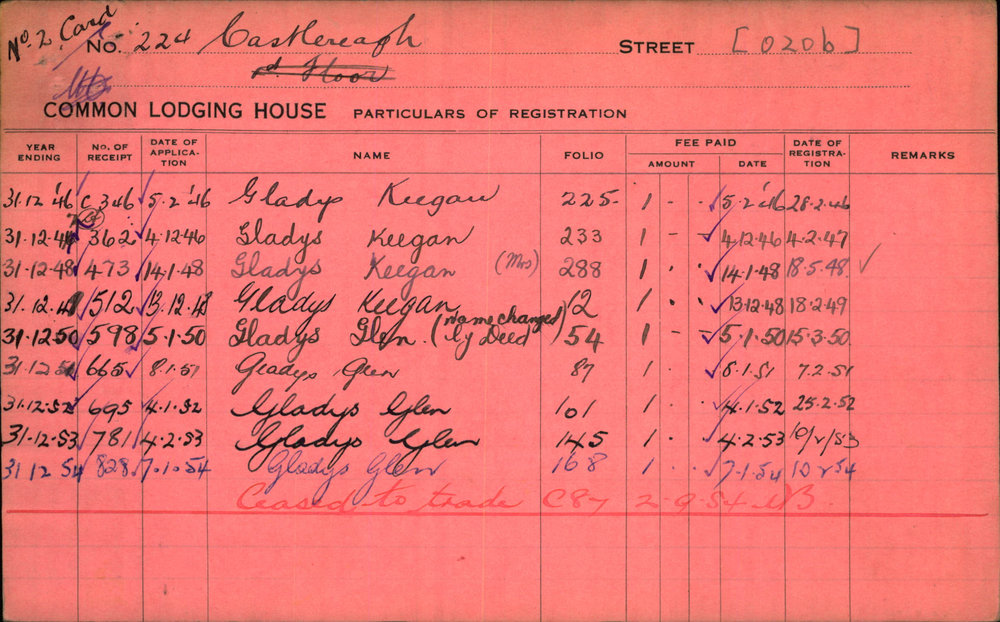 No. 2 Card
No. 224 Castlereagh STREET [0206]
Floor
COMMON LODGING HOUSE PARTICULARS OF REGISTRATION
YEAR ENDING No. OF RECEIPT DATE OF APPLICATION NAME FOLIO FEE PAID AMOUNT DATE DATE OF REGISTRATION REMARKS
31.12.'46 C 346 5.2.'46 Gladys Keegan 225 1 - - 5.2.'46 28.2.46
31.12.47 362 4.12.46 Gladys Keegan 233 1 - - 4.12.46 4.2.47
31.12.48 473 14.1.48 Gladys Keegan (Mrs) 288 1 . . 14.1.48 18.5.48 ✓
31.12.49 512 13.12.48 Gladys Keegan 12 1 . . 13.12.48 18.2.49
31.12.50 598 5.1.50 Gladys Glen (name changed by Deed) 54 1 - - 5.1.50 15.3.50
31.12.51 665 8.1.51 Gladys Glen 87 1 . . 8.1.51 7.2.51
31.12.52 695 4.1.52 Gladys Glen 101 1 . . 4.1.52 25.2.52
31.12.53 781 4.2.53 Gladys Glen 145 1 . . 4.2.53 10/2/53
31 12 54 828 7.1.54 Gladys Glen 168 1 . . 7.1.54 10 2 54
Ceased to trade C87 2.9.54